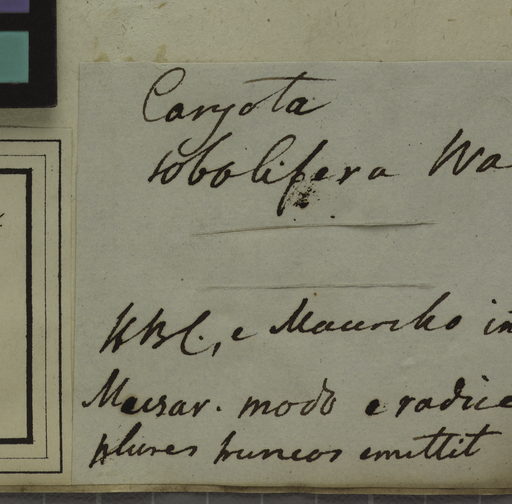 Caryota
sobolifera Wa
HBC., e Mauricko in
Musar. modo e radice
plures truncos emittit